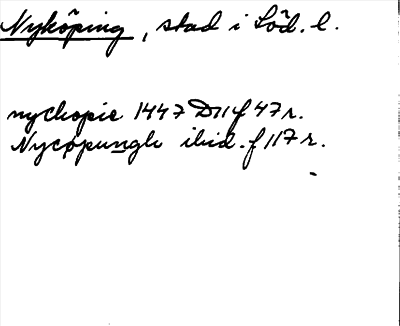 Nyköping, stad i Söd. l.
nychopie 1447 D11 f 47 r.
Nycopungh ibid. f 117 r.